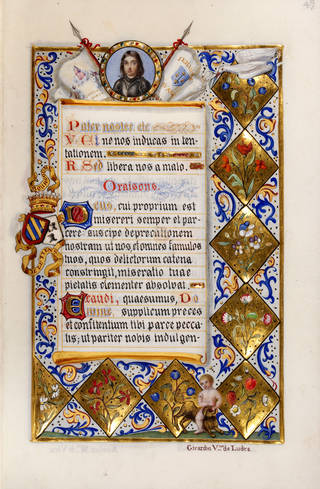 Pater noster. etc
V. Et ne nos inducas in ten
tationem.
R. Sed libera nos a malo.
Oraisons.
Deus, cui proprium est
misereri semper et par
cere: suscipe deprecationem
nostram ut nos, et omnes famulos
tuos, quos delictorum catena
constringit, miseratio tuae
pietatis clementer absolvat.
Exaudi, quaesumus, Do
mine, supplicum preces
et confitentium tibi parce pecca
tis; ut pariter nobis indulgen-
Girardo V.te de Ludre.